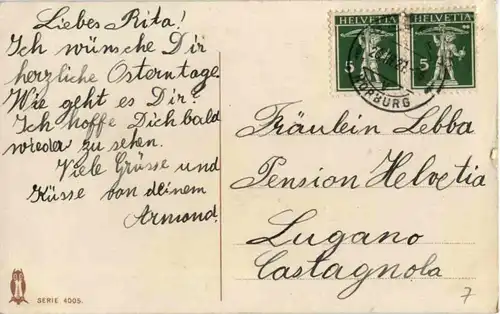 Liebes Rita!
Ich wünsche Dir
herzliche Osterntage.
Wie geht es Dir?
Ich hoffe Dich bald
wieder zu sehen.
Viele Grüsse und
Küsse von deinem
Armond.
HELVETIA
5
HELVETIA
5
Fräulein Lebba
Pension Helvetia
Lugano
Castagnola
7
SERIE 4005.